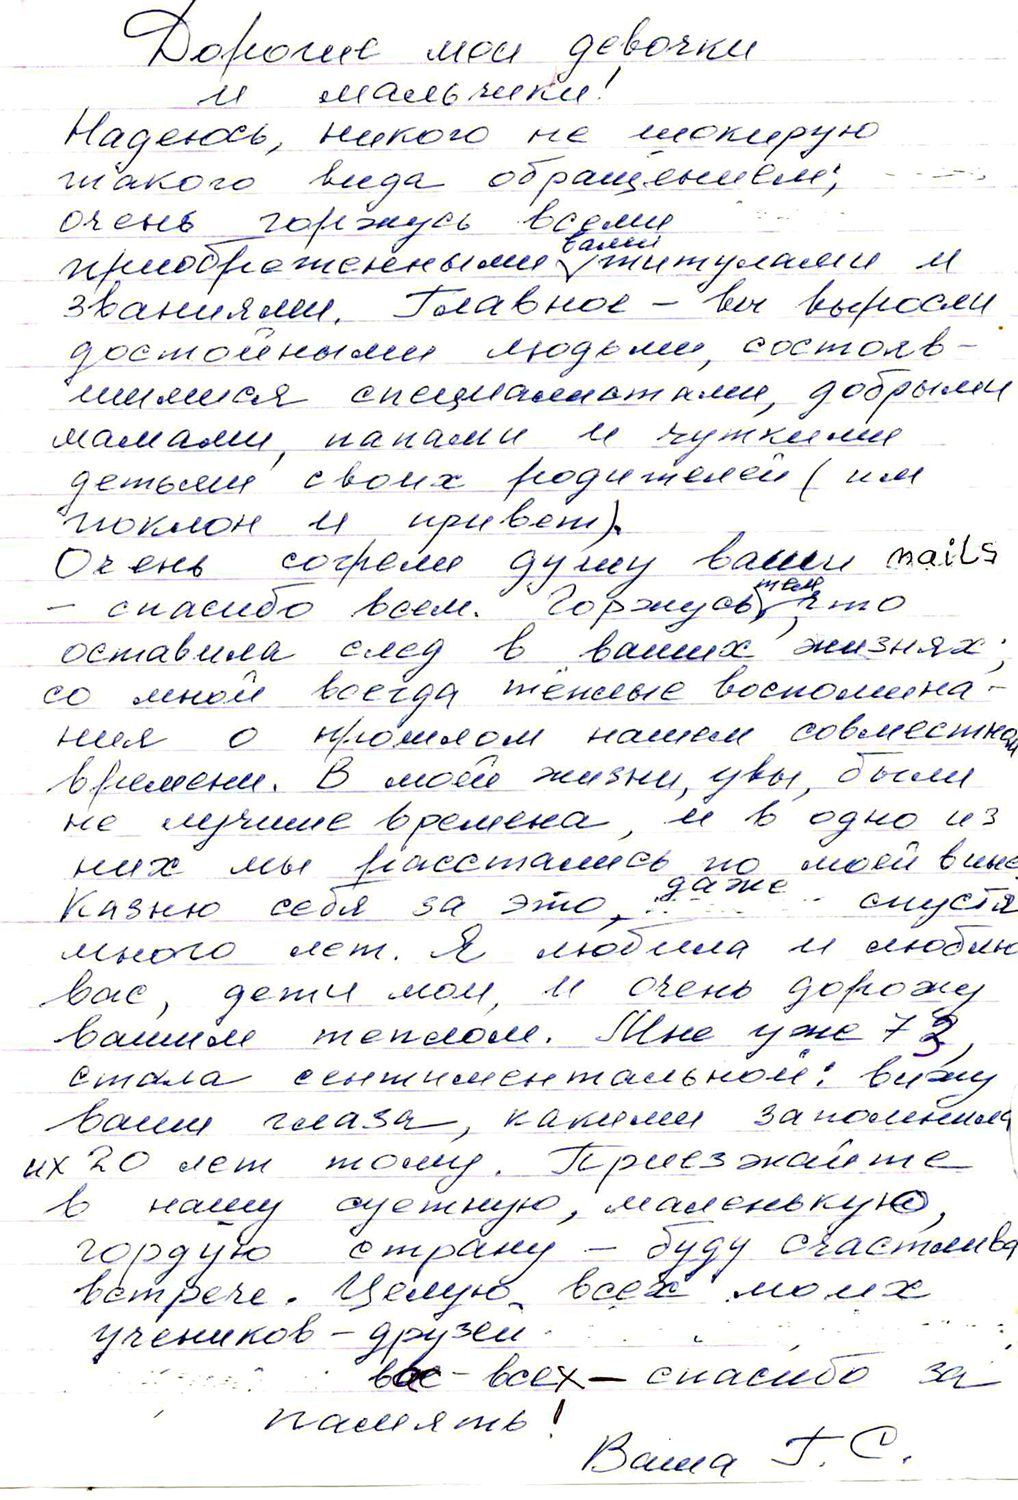 Дорогие мои девочки
и мальчики!
Надеюсь, никого не шокирую
такого вида обращением;
очень горжусь всеми
приобретенными вами титулами и
званиями. Главное – вы выросли
достойными людьми, состояв-
шимися специалистами, добрыми
мамами, папами и чуткими
детьми своих родителей (им
поклон и привет).
Очень согрели душу ваши mails
– спасибо всем. Горжусь тем, что
оставила след в ваших жизнях;
со мной всегда тёплые воспомина-
ния о прошлом нашем совместном
времени. В моей жизни, увы, были
не лучшие времена, и в одно из
них мы расстались по моей вине.
Казню себя за это, даже спустя
много лет. Я любила и люблю
вас, дети мои, и очень дорожу
вашим теплом. Мне уже 73,
стала сентиментальной: вижу
ваши глаза, какими запомнила
их 20 лет тому. Приезжайте
в нашу суетную, маленькую,
гордую страну – буду счастлива
встрече. Целую всех моих
учеников – друзей.
вас – всех – спасибо за
память!
Ваша Г. С.